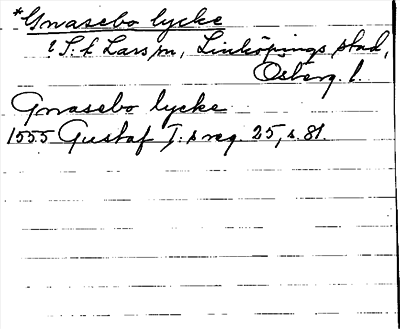 *Gnasebo lycke
i S:t Lars sn, Linköpings stad,
Österg. l.
Gnasebo lycke
1555 Gustaf I:s reg. 25, s. 81.